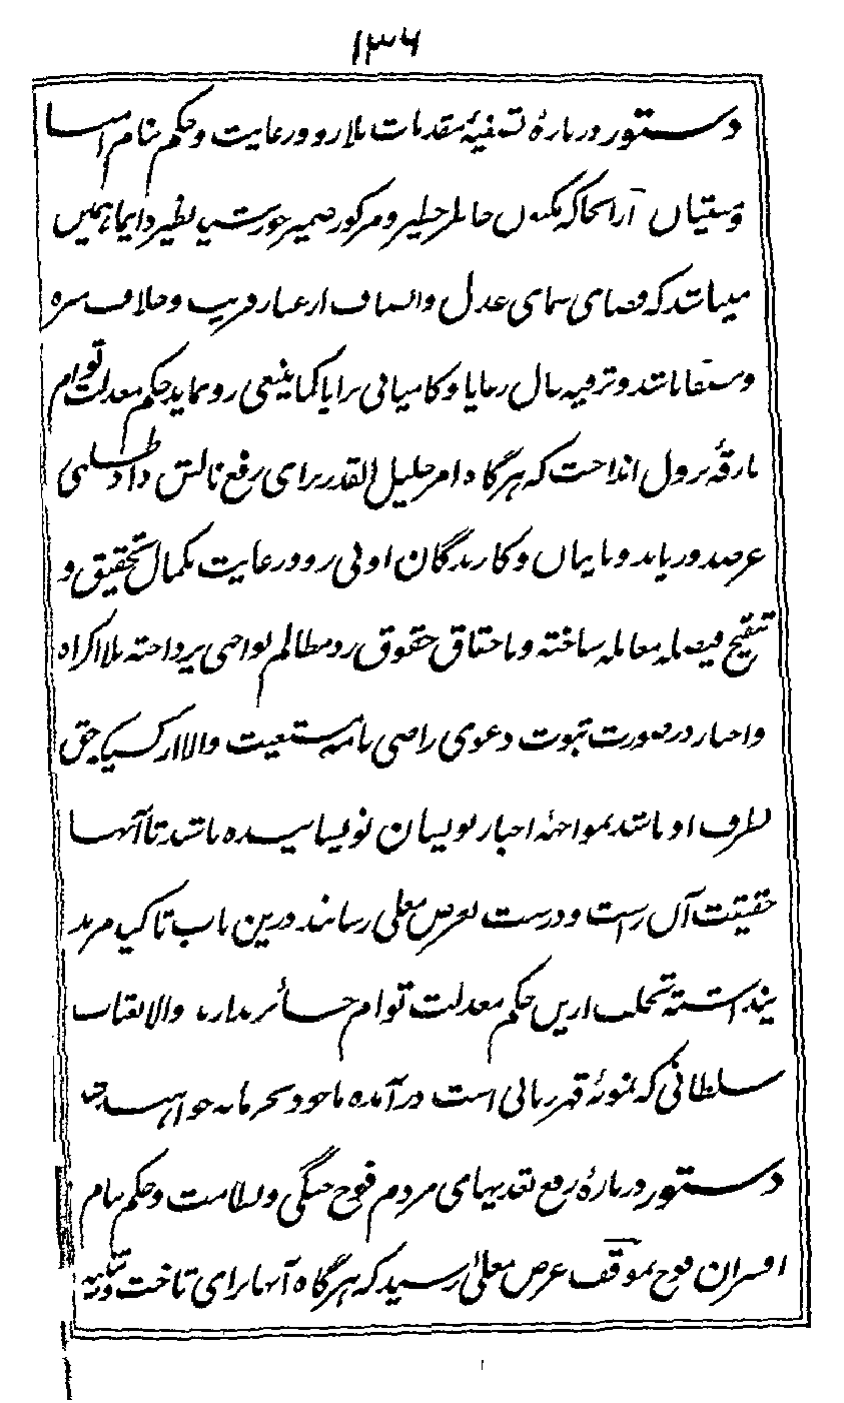 ۱۳۶
دستور دربارهٔ تصفیهٔ مقدمات بلارو و رعایت و حکم بنام امنا
و متقیان آرانجاکه مکنون خاطر خطیر و مرکوز ضمیر خورشید نظیر دایما همین
میباشد که فضای سمای عدل و انصاف از غبار فریب و خلاف منزه
و مصفا باشد و ترفیه حال رعایا و کامیابی برایا کما ینبغی رو نماید حکم معدلت توام
بارقهٔ نزول انداخت که هرگاه امر جلیل القدر برای رفع نالش دادطلبی
عز صدور یابد و نایبان و کارندگان او بی رو و رعایت بکمال تحقیق و
تنقیح فیصله معامله ساخته و باحقاق حقوق رد مظالم بواجبی پرداخته بلا اکراه
و اجبار در صورت ثبوت دعوی راضی نامه مستغیث و الا از کسیکه حق
بطرف او باشد بمواجهٔ اخبار نویسان نویسانیده باشد تا آنها
حقیقت آن راست و درست بعرض معلی رسانند درین باب تاکید مزید
پنداشته تخلف ازین حکم معدلت توام جائز ندارند والا بعتاب
سلطانی که نمونهٔ قهر ربانی است در آمده ماخوذ بجرمانه خواهند شد
دستور دربارهٔ رفع تعدیهای مردم فوج جنگی و سلامت و حکم بنام
افسران فوج بموقف عرض معلیٰ رسید که هرگاه آنها برای تاخت و تنبیه